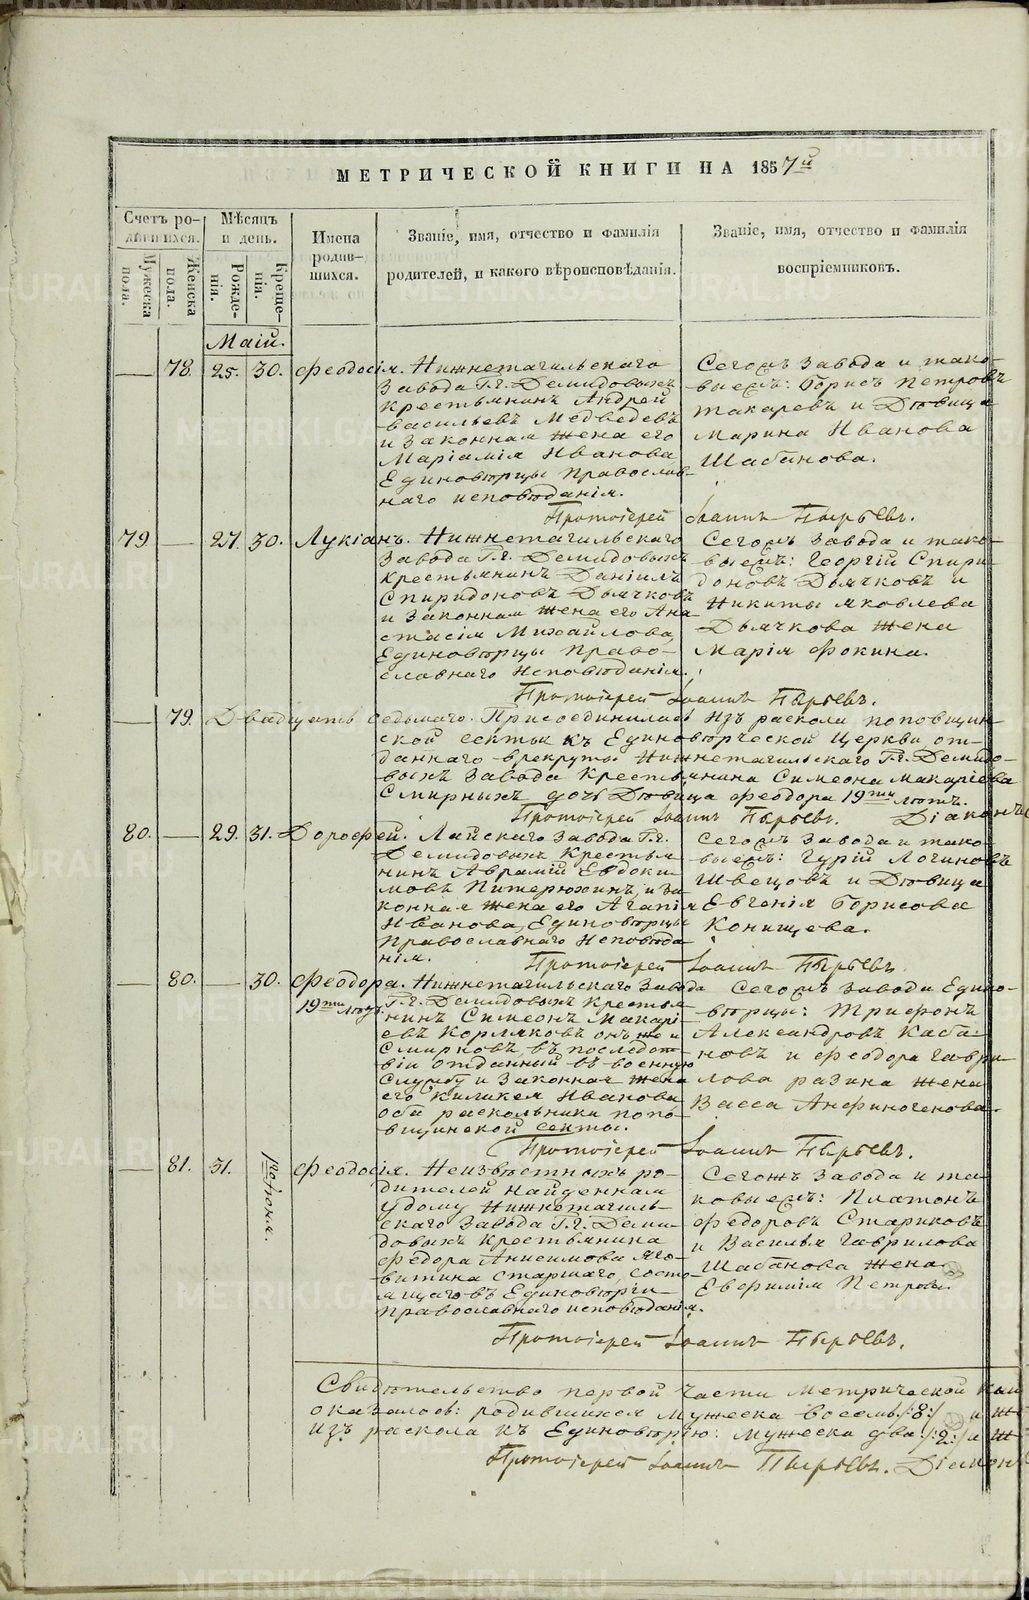 МЕТРИЧЕСКОЙ КНИГИ НА 1857й
Счетъ ро-
дившихся.
Мужеска
пола.
Женска
пола.
Мѣсяцъ
и день.
Рожде-
нія.
Креще-
нія.
Имена
родив-
шихся.
Званіе, имя, отчество и фамилія
родителей, и какого вѣроисповѣданія.
Званіе, имя, отчество и фамилія
воспріемниковъ.
Маій.
— 78. 25. 30. Феодосія. Нижнетагильскаго
Завода Г.г. Демидовыхъ
Крестьянинъ Андрей
Васильевъ Медведевъ
и Законная жена его
Маріамія Иванова
Единовѣрцы Православ-
наго исповѣданія.
Сегожъ Завода и тако-
Борисъ Петровъ
Макаревъ и Дѣвица
Марина Иванова
Шабанова.
Протоіерей Іоаннъ Пырьевъ.
79 — 27. 30. Лукіанъ. Нижнетагильскаго
Завода Г.г. Демидовыхъ
Крестьянинъ Даніилъ
Спиридоновъ Дьячковъ
и Законная жена его Ана-
стасія Михайлова,
Единовѣрцы Право-
славнаго Исповѣданія.
Сегожъ Завода и тако-
Георгій Спири-
доновъ Дьячковъ и
Никиты Яковлева
Дьячкова жена
Марія Фокина.
Протоіерей Іоаннъ Пырьевъ.
— 79. Двадцать седьмаго. Присоединилась изъ раскола поповщин-
ской секты къ Единовѣрческой Церкви от-
даннаго в рекруты Нижнетагильскаго Г.г. Демидо-
выхъ Завода Крестьянина Симеона Макаріева
Смирныхъ дочь Дѣвица Феодора 19ти лѣтъ.
Протоіерей Іоаннъ Пырьевъ. Діаконъ
80. — 29. 31. Дорофей. Лайскаго Завода Г.г.
Демидовыхъ Крестья-
нинъ Аврамій Евдоки-
мовъ Питерюхинъ, и За-
конная жена его Агапія
Иванова, Единовѣрцы
Православнаго Исповѣда-
нія.
Сегожъ Завода и тако-
Гурій Логиновъ
Швецовъ и Дѣвица
Евгенія Борисова
Конищева.
Протоіерей Іоаннъ Пырьевъ.
— 80. — 30. Феодора. Нижнетагильскаго Завода
19ти лѣтъ.
Г.г. Демидовыхъ Крестья-
нинъ Симеонъ Макарі-
евъ Корляковъ онъ же и
Смирновъ, въ послѣдст-
віи отданный въ военную
Службу и Законная жена
его Киликея Иванова
оба раскольники попо-
вщинской секты.
Сегожъ Завода Едино-
вѣрцы: Трифонъ
Александровъ Каба-
новъ и Феодора Гаври-
лова Разина жена
Васса Анфиногенова.
Протоіерей Іоаннъ Пырьевъ.
— 81. 31. 1го Іюня. Феодосія. Неизвѣстныхъ ро-
дителей Найденная
у дому Нижнетагиль-
скаго Завода Г.г. Деми-
довыхъ Крестьянина
Федора Анисимова Яго-
витина Старшаго, состо-
ящаго въ Единовѣріи
Православнаго исповѣданія.
Сегожъ Завода и та-
Платонъ
Федоровъ Стариковъ
и Василья Гаврилова
Шабанова жена
Евфимія Петрова.
Протоіерей Іоаннъ Пырьевъ.
Свидѣтельство первой части Метрической Кни
оказалось: родившихся Мужеска восемь /:8:/ и Же
изъ раскола къ Единовѣрію: мужеска два /:2:/ и Ж
Протоіерей Іоаннъ Пырьевъ. Діаконъ
METRIKI.GASO-URAL.RU